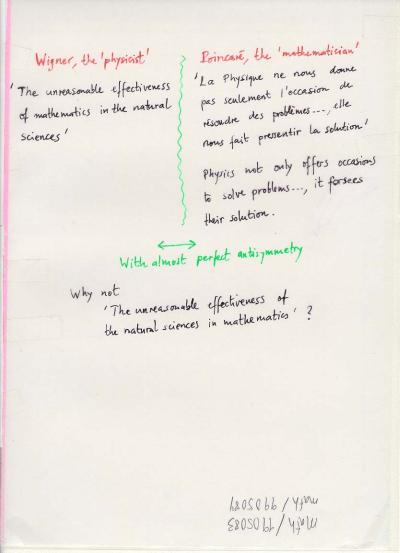 Wigner, the 'physicist'
'The unreasonable effectiveness
of mathematics in the natural
sciences'
Poincaré, the 'mathematician'
'La Physique ne nous donne
pas seulement l'occasion de
résoudre des problèmes..., elle
nous fait presentir la solution'
Physics not only offers occasions
to solve problems..., it forsees
their solution.
With almost perfect antisymmetry
Why not
'The unreasonable effectiveness of
the natural sciences in mathematics' ?
Math / 9905083
math / 9905087